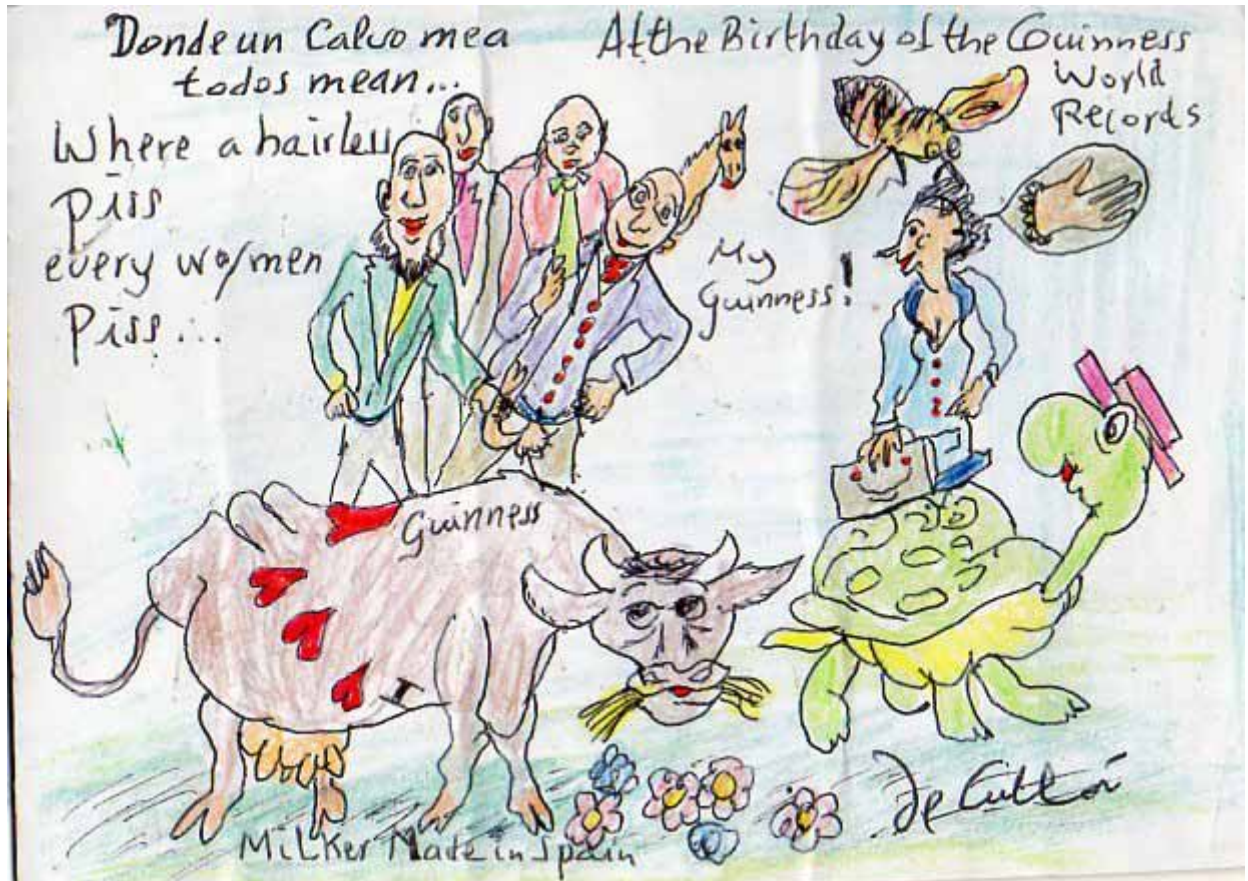 Donde un Calvo mea
todos mean...
Where a hairless
piss
every wo/men
Piss...
At the Birthday of the Guinness
World
Records
My
Guinness!
Guinness
I
Milker Made in Spain